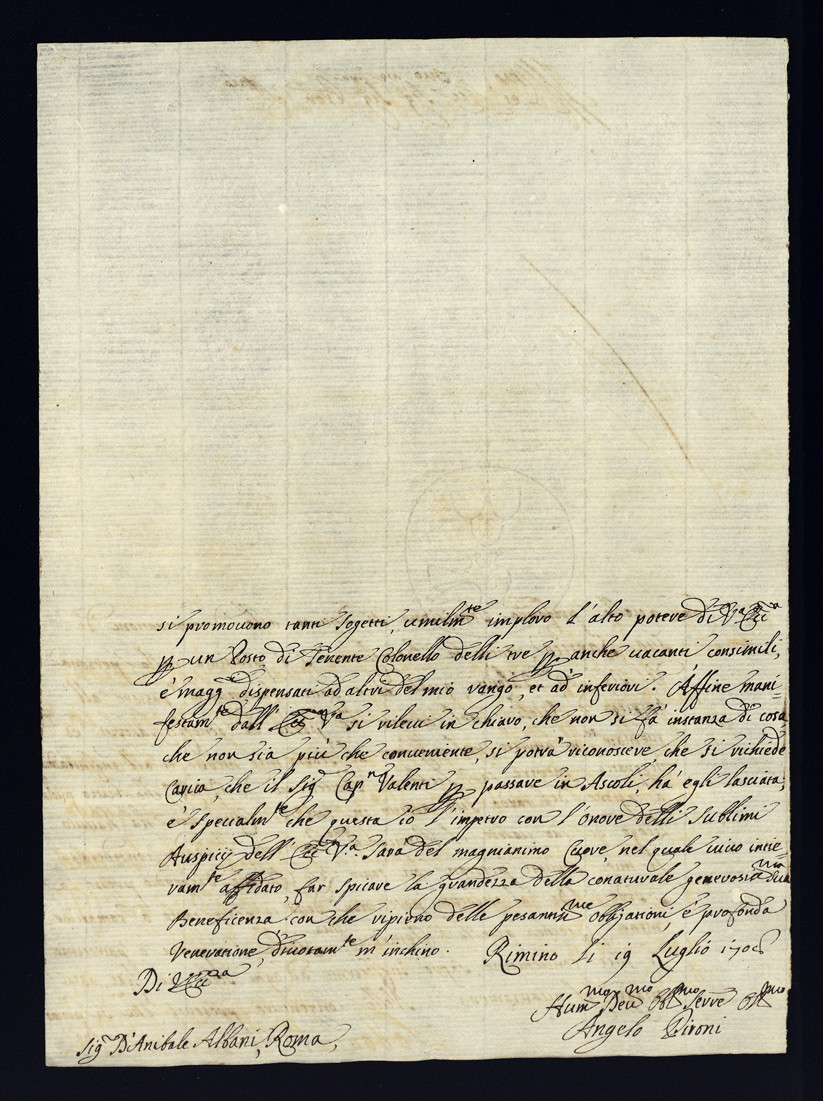 si promovono tanti sogetti, umilmte imploro l'alto potere di Va Ecca
per un Posto di Tenente Colonello delli tre per anche vacanti consimili,
è magg dispensati ad altri del mio rango, et ad inferiori. Affine mani=
festamte dall' Ecca Va si rilevi in chiaro, che non si fà instanza di cosa
che non sia più che conveniente, si potrà riconoscere che si richiede
Carica, che il Sigr Capn Valenti per passare in Ascoli, hà egli lasciata;
è specialmte che questa io l'impetro con l'onore delli Sublimi
Auspicij dell' Ecca Va. Sarà del magnianimo Cuore, nel quale vivo intie=
ramte affidato, far spicare la grandezza della conaturale generosissma sua
Beneficenza con che ripieno delle pesantissme obligationi, è profonda
Veneratione, divotamte m'inchino. Rimino li 19 Luglio
Di V Ecca
Hummo Devmo Servre
Angelo Pironi
Sigr D'Anibale Albani, Roma,